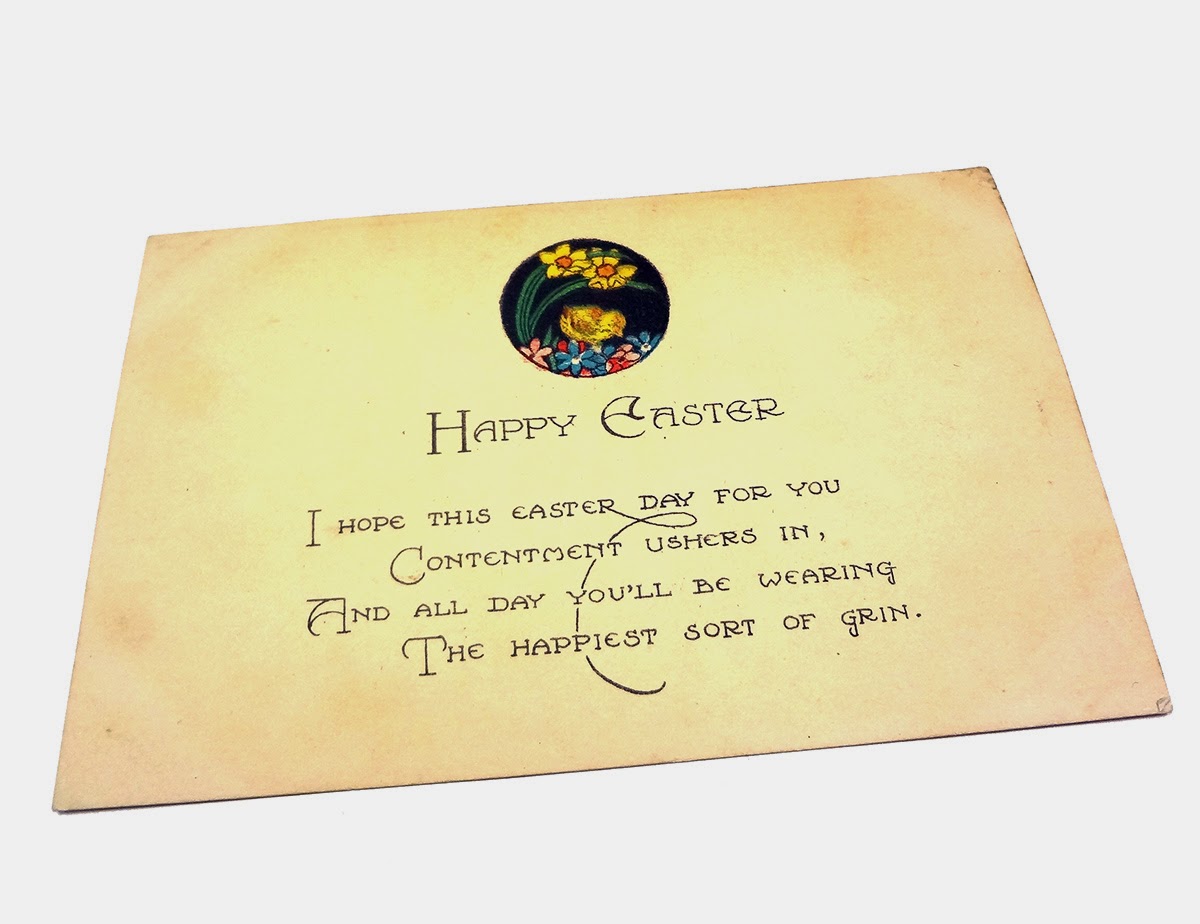 Happy Easter
I hope this easter day for you
Contentment ushers in,
And all day you'll be wearing
The happiest sort of grin.